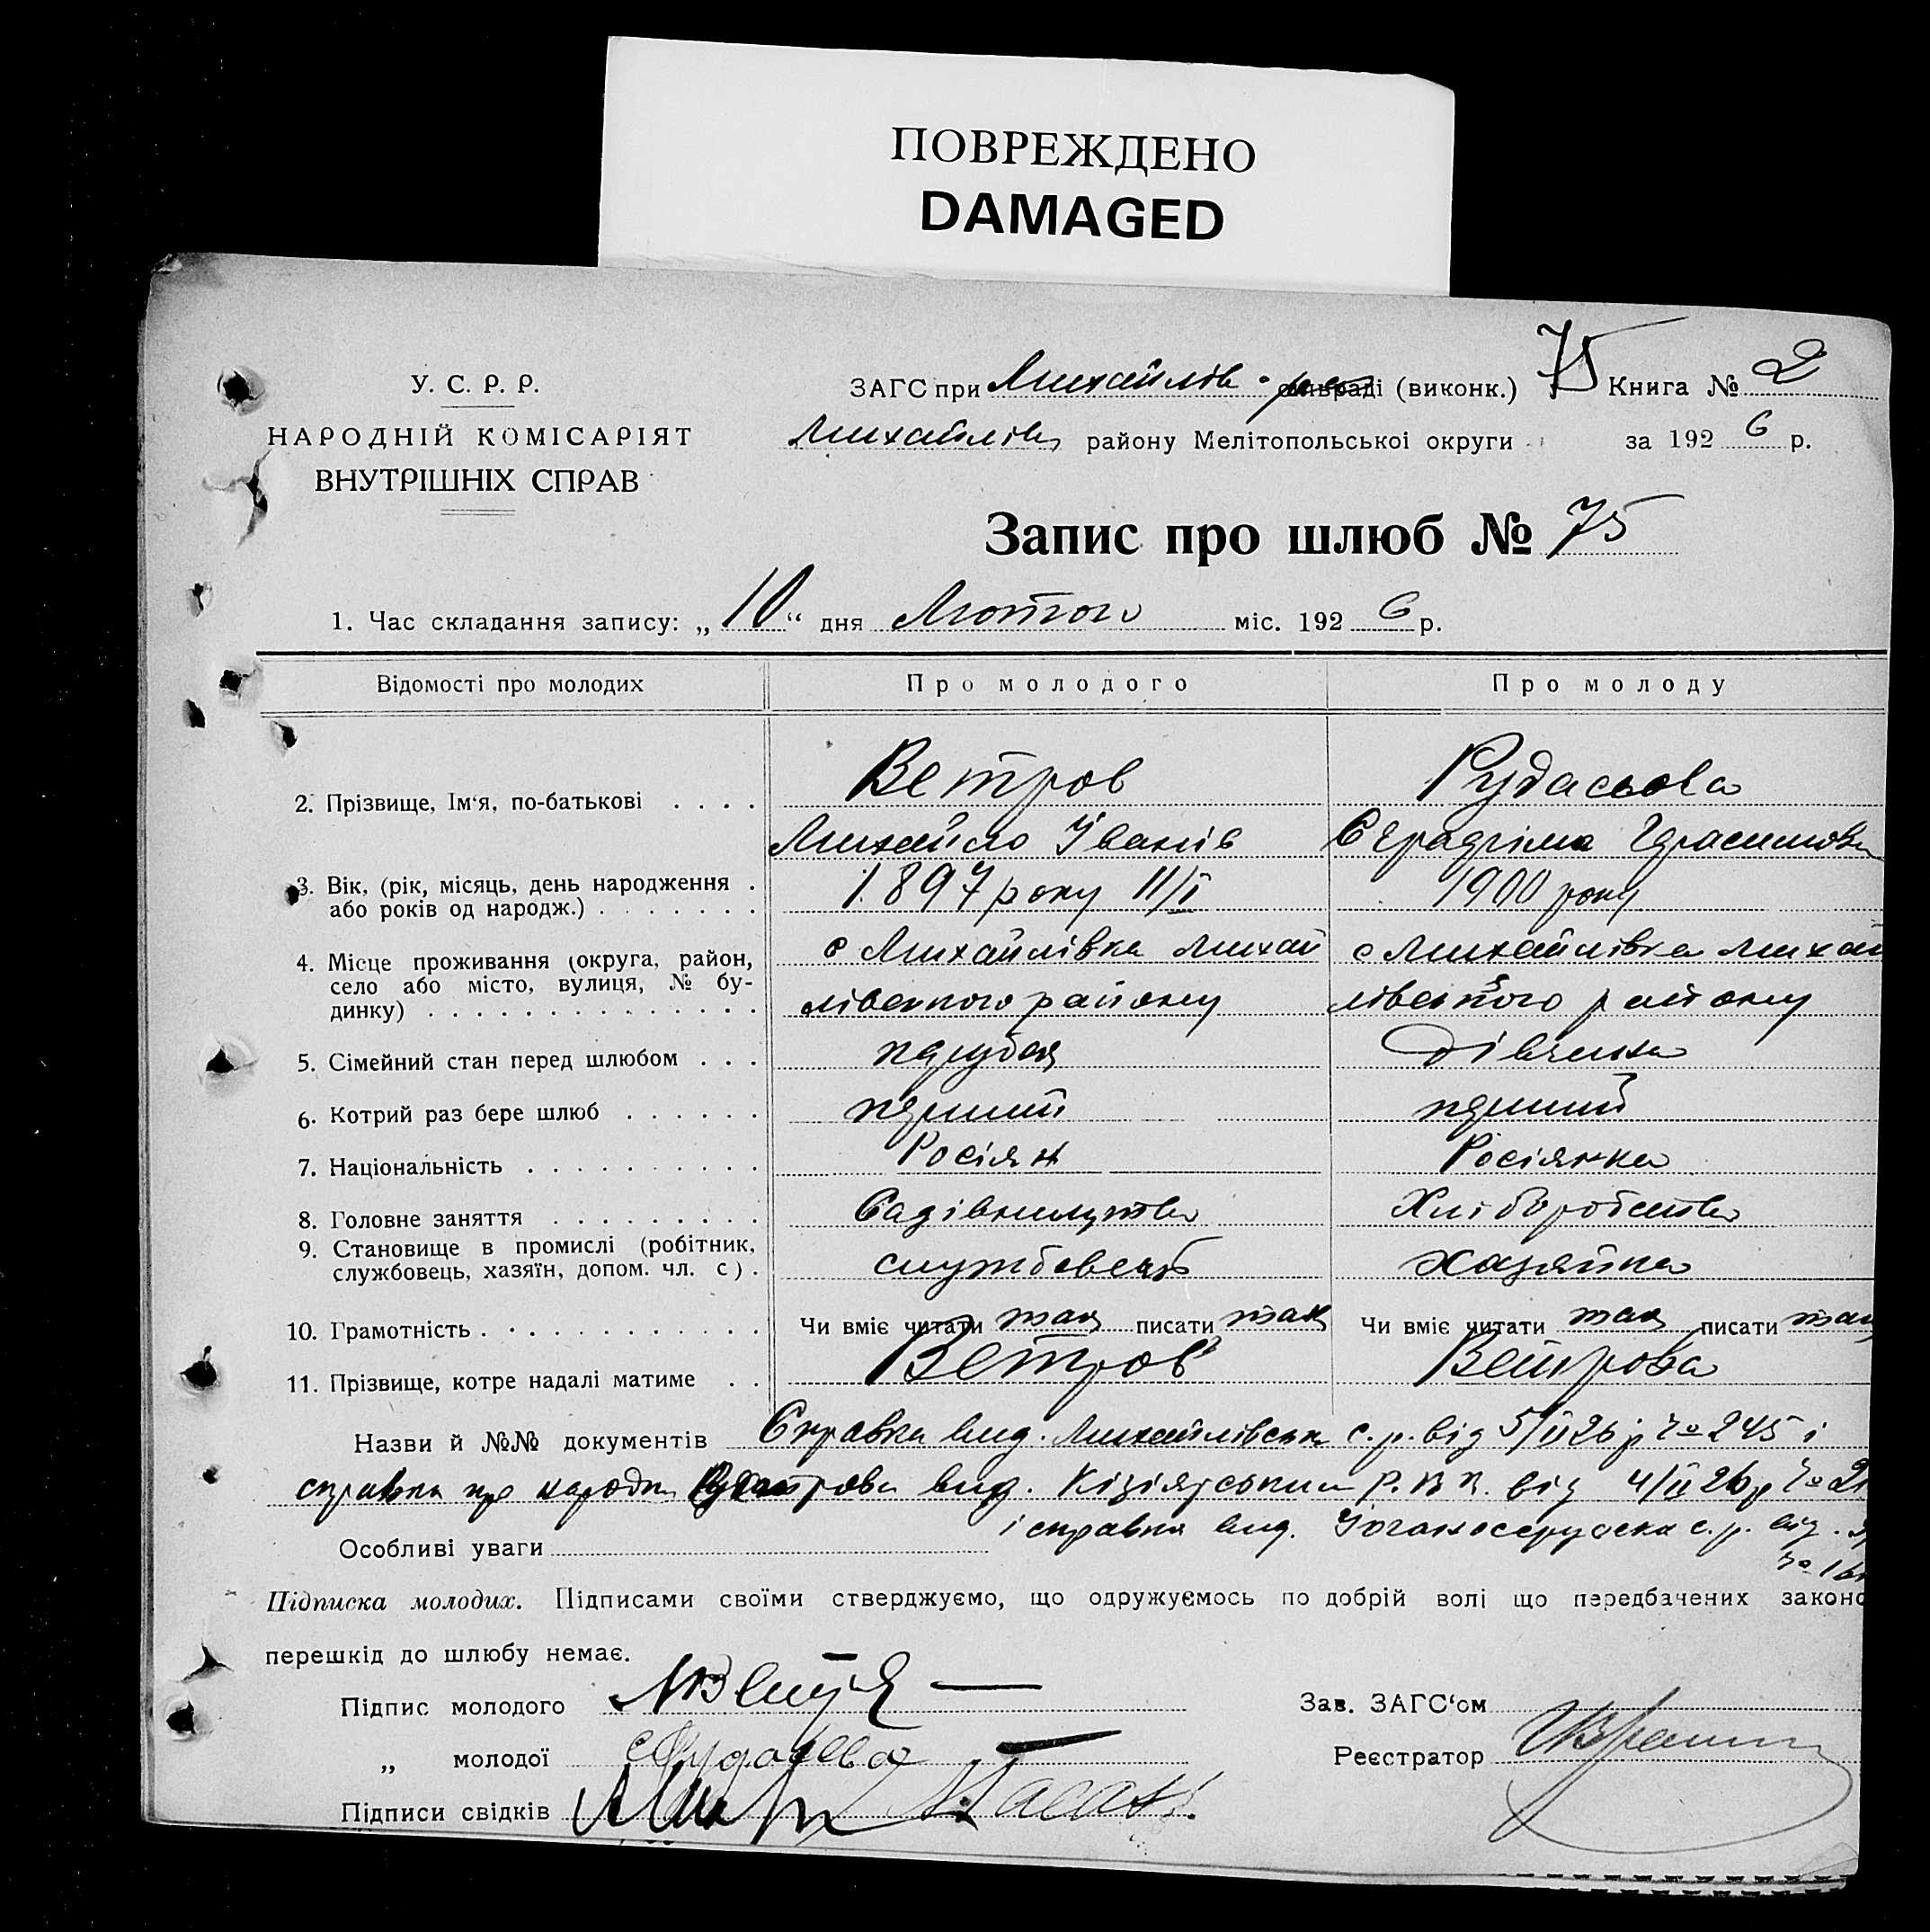 ПОВРЕЖДЕНО
DAMAGED
У. С. Р. Р.
НАРОДНІЙ КОМІСАРІЯТ
ВНУТРІШНІХ СПРАВ
ЗАГС при Михайлів. раді (виконк.) 75 Книга № 2
Михайлів району Мелітопольської округи за 1926 р.
Запис про шлюб № 75
1. Час складання запису: „10“ дня Лютого міс. 1926 р.
Відомості про молодих Про молодого Про молоду
2. Прізвище, Ім‘я, по-батькові . . . . Ветров Рудасьова
Михайло Іванів
3. Вік, (рік, місяць, день народження . 1897 року 11/I 1900 року
або років од народж.) . . . . . . .
4. Місце проживання (округа, район, с Михайлівка Михай с Михайлівка Михай
село або місто, вулиця, № бу-
динку) . . . . . . . . . . . . . . лівського району лівського району
5. Сімейний стан перед шлюбом . . . парубок дівчина
6. Котрий раз бере шлюб . . . . . . перший перший
7. Національність . . . . . . . . . . Росіян Росіянка
8. Головне заняття . . . . . . . . . Садівництво Хліборобство
9. Становище в промислі (робітник, службовець хазяйка
службовець, хазяїн, допом. чл. с) .
10. Грамотність . . . . . . . . . . . . Чи вміє читати так писати так Чи вміє читати так писати так
11. Прізвище, котре надалі матиме . . Ветров Ветрова
Назви й №№ документів Справка вид. Михайлівськ с.р. від 5/II 26 р № 245 і
справка про вид. Р.В.К. від 4/II 26 р №
Особливі уваги і справка вид. с.р. від
Підписка молодих. Підписами своїми стверджуємо, що одружуємось по добрій волі що передбачених законо
перешкід до шлюбу немає.
Підпис молодого Зав. ЗАГС‘ом
„ молодої Рудасева Реєстратор
Підписи свідків